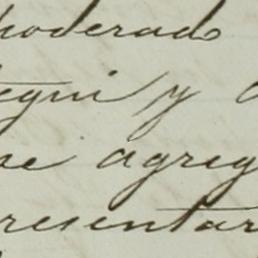 poderado
egui y
se agreg
resentar